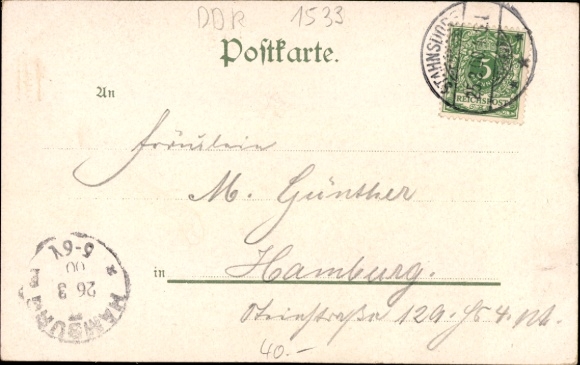 DDR 1533
Postkarte.
STAHNSDORF
5
REICHSPOST
An
Fräulein
M. Günther
in Hamburg.
Steinstraße 129. Hs 4.
HAMBURG
26 3
00
5-6V
40.-